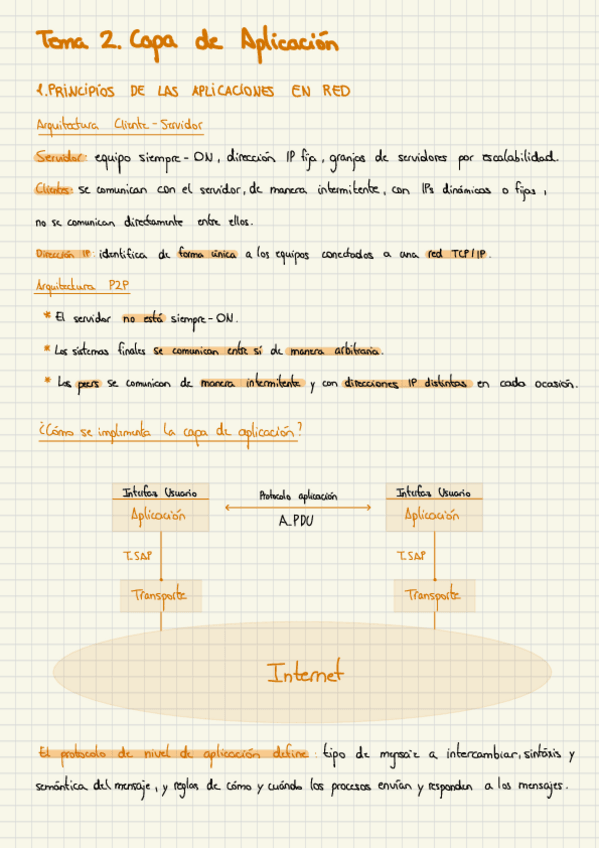 Tema 2. Capa de Aplicación
1. PRINCIPIOS DE LAS APLICACIONES EN RED
Arquitectura Cliente-Servidor
Servidor: equipo siempre-ON, dirección IP fija, granjas de servidores por escalabilidad.
Clientes: se comunican con el servidor, de manera intermitente, con IPs dinámicas o fijas,
no se comunican directamente entre ellos.
Dirección IP: identifica de forma única a los equipos conectados a una red TCP/IP.
Arquitectura P2P
* El servidor no está siempre-ON.
* Los sistemas finales se comunican entre sí de manera arbitraria.
* Los peers se comunican de manera intermitente y con direcciones IP distintas en cada ocasión.
¿Cómo se implementa la capa de aplicación?
Interfaz Usuario Protocolo aplicación Interfaz Usuario
Aplicación A_PDU Aplicación
T_SAP T_SAP
Transporte Transporte
Internet
El protocolo de nivel de aplicación define: tipo de mensaje a intercambiar, sintáxis y
semántica del mensaje, y reglas de cómo y cuándo los procesos envían y responden a los mensajes.